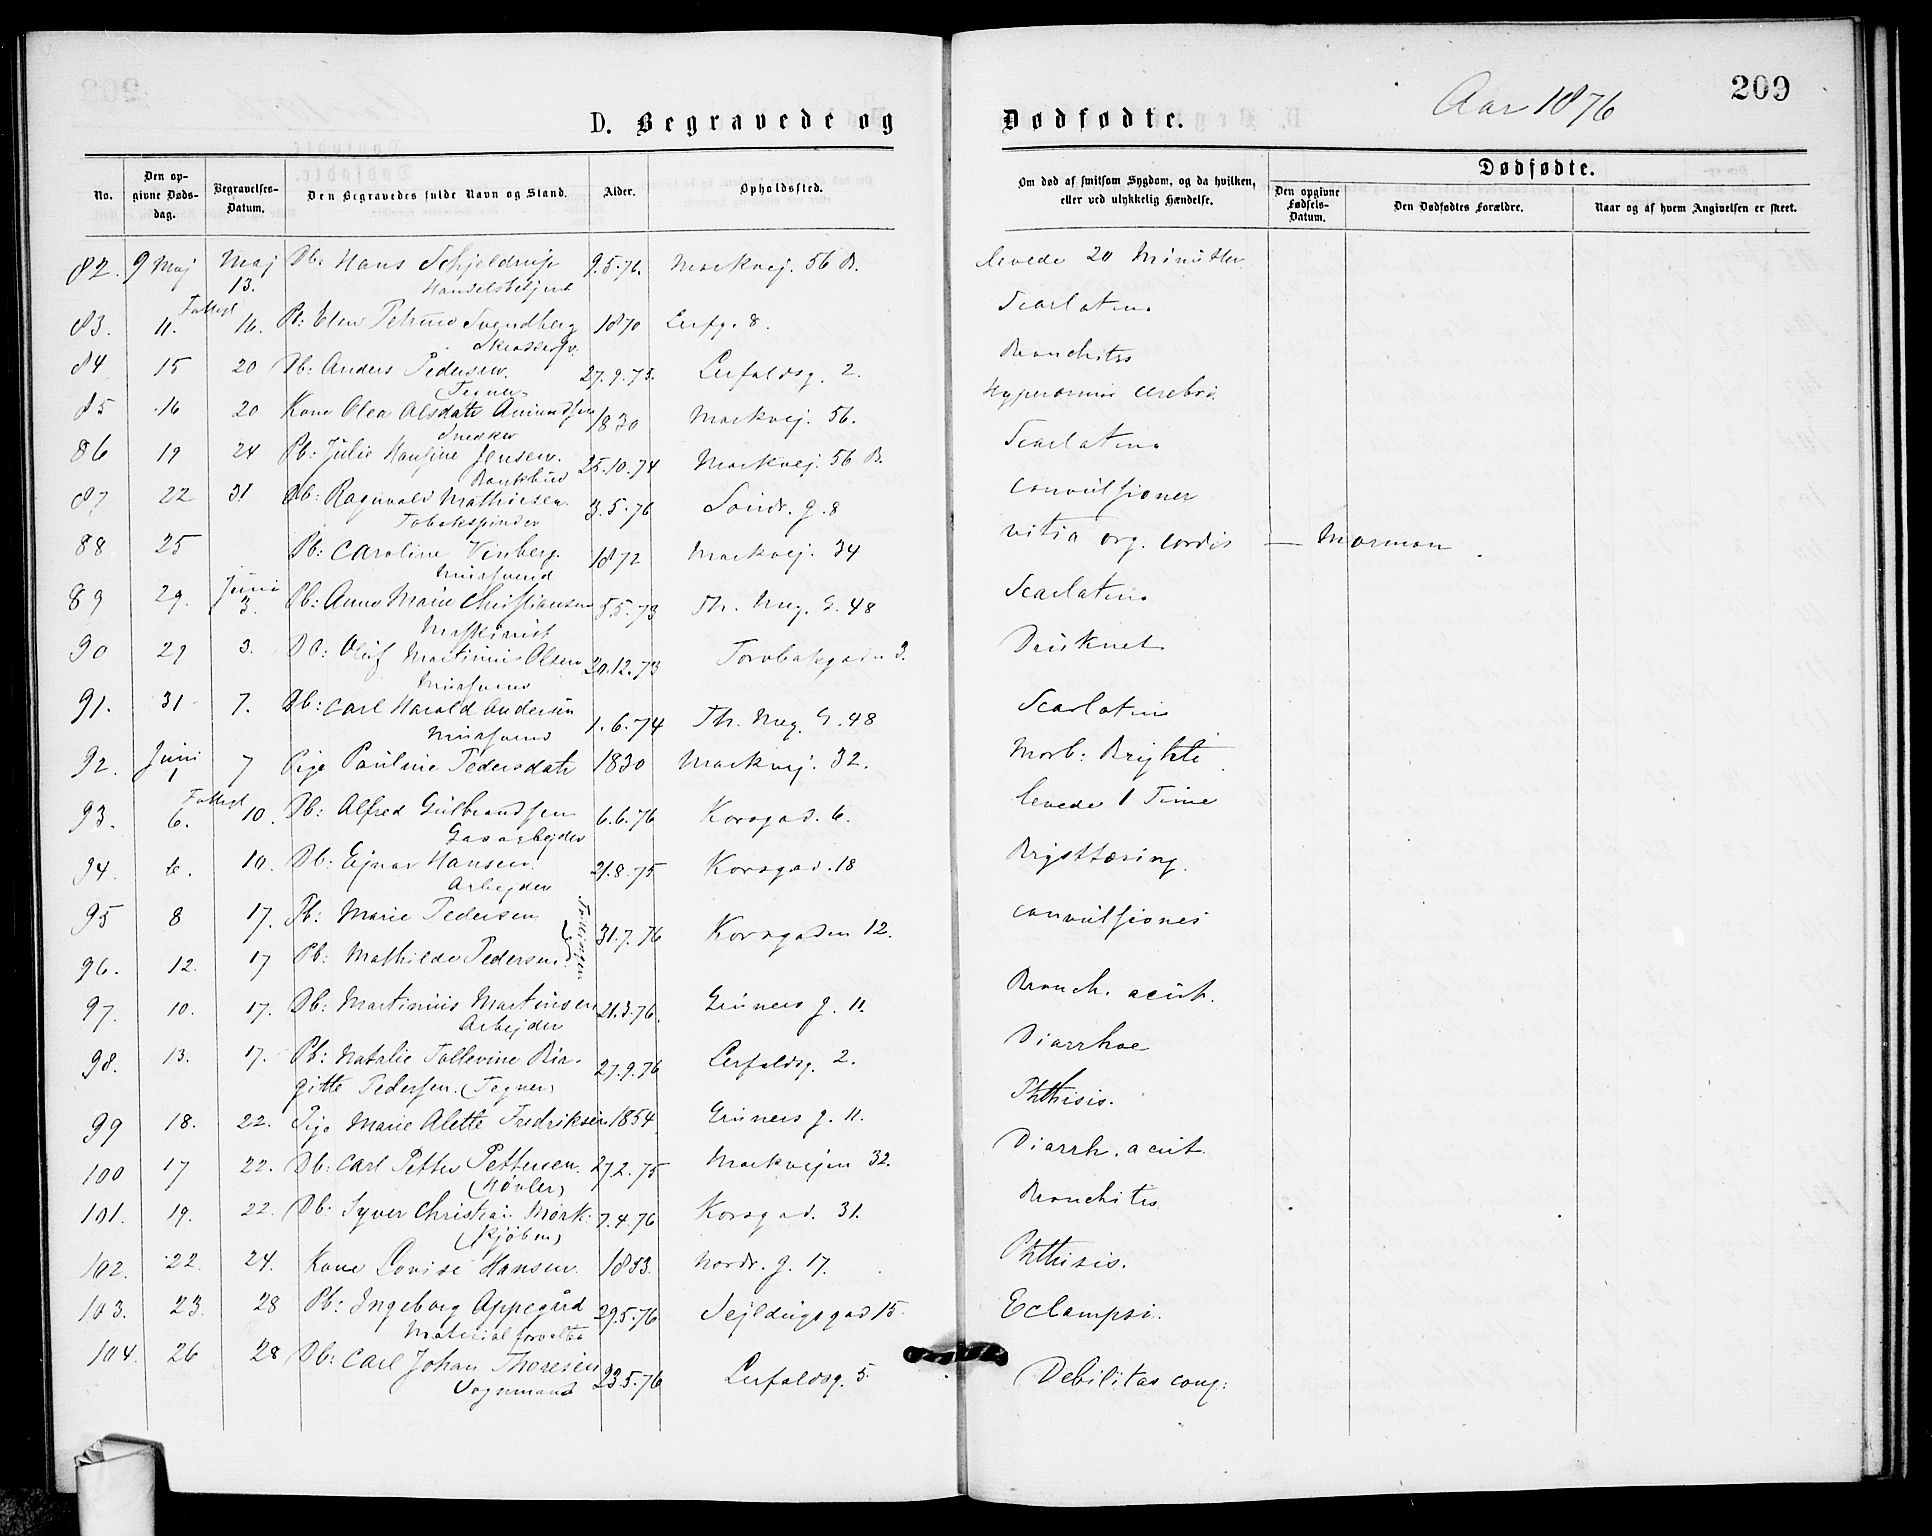 209
Aar 1876
D. Begravede og Dødfødte.
No. Den opgivne Dødsdag. Begravelses-Datum. Den Begravedes fulde Navn og Stand. Alder. Opholdssted. Om død af smitsom Sygdom, og da hvilken, eller ved ulykkelig Hændelse. Dødfødte. Den opgivne Fødsels-Datum. Den Dødfødtes Forældre. Naar og af hvem Angivelsen er skeet.
82. 9 Maj Maj 13. Db: Hans Schjeldrup 9.5.76. Markvej. 56 B. levede 20 Minutter
Handelsbetjent
83. 11. 16. Pb: Elen Petrine Svendberg 1870 Lerfg. 8. Scarlatina
84 15 20 Db: Anders Pedersen. 27.9.75. Lerfaldsg. 2. Bronchites
Tegner
85 16 20 Kone Olea Olsdatr Amundsen 1830 Markvej. 56. Hyperæmia cerebri
Snedker
86 19 24 Pb: Julie Hansine Jensen. 25.10.74 Markvej. 56 B. Scarlatina
Bankbud
87 22 31 Db: Ragnvald Mathiesen 3.5.76 Søndr. g. 8 convulsioner
Tobakspinder
88 25 Pb: Caroline Vinberg. 1872 Markvej. 34 vitia org. cordis — Mormon.
Mursvend
89 29. Juni 3. Pb: Anna Marie Christiansen 5.5.73 Th. Mey. G. 48 Scarlatina
Maskinist
90 29 3. Db: Oluf Martinius Olsen 20.12.73 Torvbakgaden 3. Druknet
Mursvend
91. 31 7. Db: Carl Harald Andersen 1.6.74 Th. Mey. G. 48 Scarlatina
Mursvend
92. Juni 1 7 Pige Pauline Pedersdatr 1830 Markvej. 32. Morb: Brighti
93. 6. 10. Db: Alfred Gulbrandsen 6.6.76 Korsgad. 6. levede 1 Time
Gasarbejder
94. 6. 10. Db: Ejnar Hansen. 21.8.75 Korsgad. 18 Brysttæring.
Arbejder
95 8 17. Pb: Marie Pedersen 31.7.76 Korsgaden 12. convulsiones
96. 12. 17 Pb: Mathilde Pedersen
97. 10. 17. Db: Martinius Martinsen 21.3.76. Grüners g. 11. Bronch. acut.
Arbejder
98. 13. 17. Pb: Natalie Tallevine Bir- 27.9.76 Lerfaldsg. 2. Diarrhoe
gitte Pedersen. (Tegner)
99 18. 22. Pige Marie Alette Fredriksen 1854. Grüners g. 11. Phthisis.
100 17 22. Db: Carl Petter Pettersen. 27.2.75 Markvejen 32. Diarrh. acut.
(Høvler)
101. 19. 22. Db: Syver Christian Mork: 7.4.76 Korsgad. 31. Bronchites
(Kjøbm)
102. 22. 24. Kone Lovise Hansen. 1853. Nordr. g. 17. Phthisis.
103. 23. 28 Pb: Ingeborg Appegård 29.5.76 Sejldugsgad 15. Eclampsi.
Materialforvalter
104. 26 28 Db: Carl Johan Thoresen 23.5.76 Lerfaldsg. 5. Debilitas cong:
Vognmand